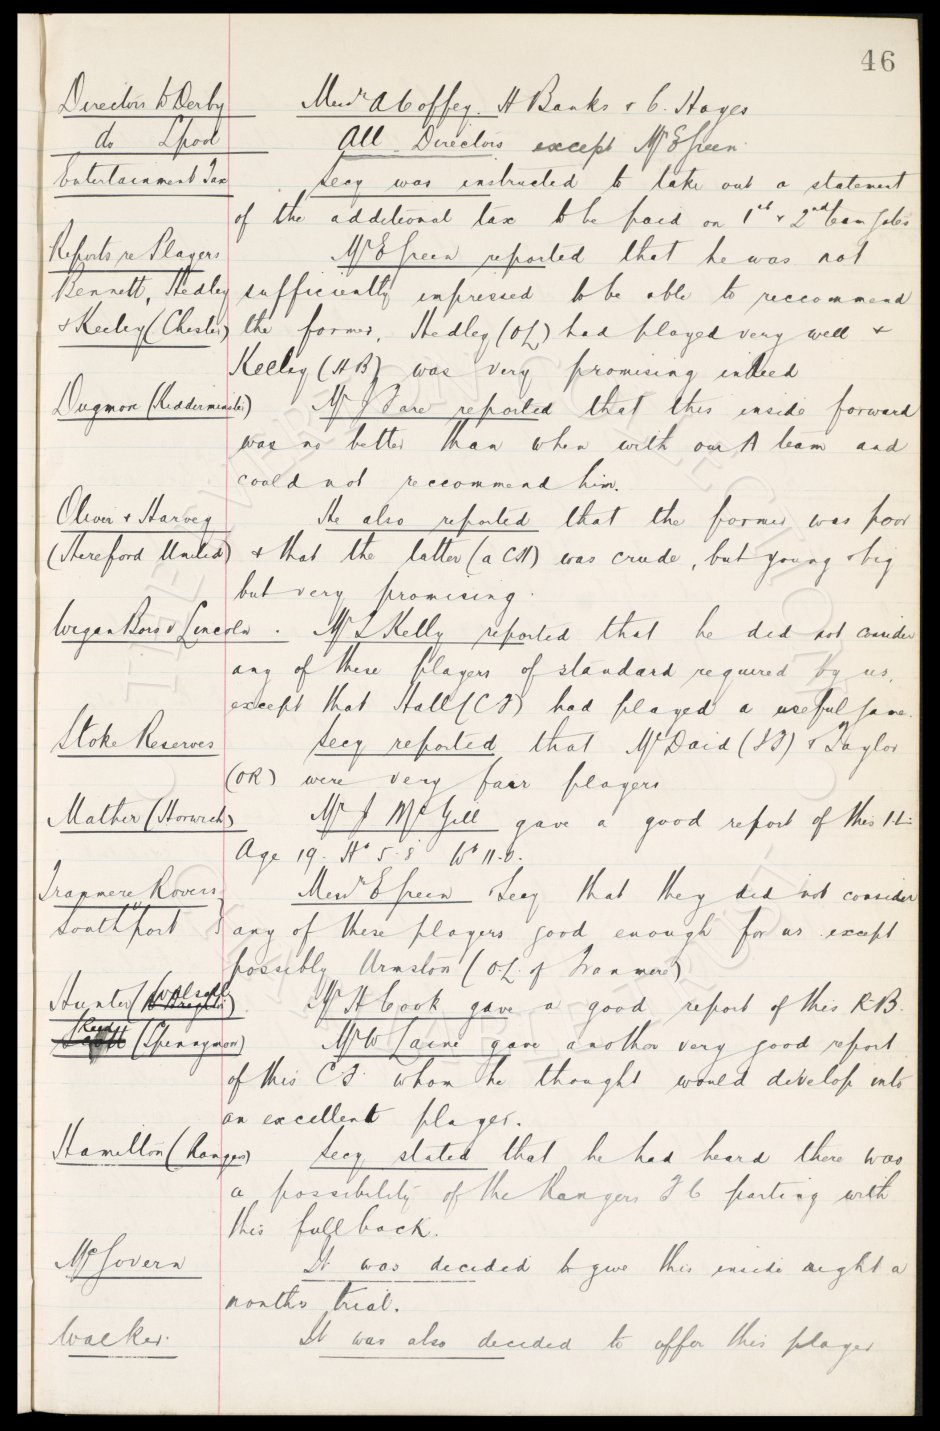 46
Directors to Derby Messrs A Coffey. H Banks & C. Hayes
do Lpool All Directors except Mr E Green.
Entertainment Tax Secy was instructed to take out a statement
of the additional tax to be paid on 1st & 2nd team gates
Reports re Players Mr E Green reported that he was not
Bennett, Hedley sufficiently impressed to be able to reccommend
& Keeley (Chester) the former, Hedley (OL) had played very well &
Keeley (HB) was very promising indeed
Dugmore (Kidderminster) Mr J Fare reported that this inside forward
was no better than when with our A team and
could not reccommend him.
Oliver & Harvey He also reported that the former was poor
(Hereford United) & that the latter (a CH) was crude, but young & big
but very promising.
Wigan Boro v Lincoln. Mr L Kelly reported that he did not consider
any of these players of standard required by us,
except that Hall (CF) had played a useful game.
Stoke Reserves Secy reported that McDaid (IF) & Taylor
(OR) were very fair players
Mather (Horwich) Mr J McGill gave a good report of this
Age 19. Ht 5.8 Wt 11.0.
Tranmere Rovers Messrs E Green & Secy that they did not consider
v Southport } any of these players good enough for us except
possibly Urmston (O.L. of Tranmere)
Hunter (Walsall) Mr H Cook gave a good report of this R-B.
Reed (Spennymoor) Mr W Laine gave another very good report
of this C.F. whom he thought would develop into
an excellent player.
Hamilton (Rangers) Secy stated that he had heard there was
a possibility of the Rangers F C parting with
this full back.
McGovern It was decided to give this inside right a
months trial.
Walker. It was also decided to offer this player